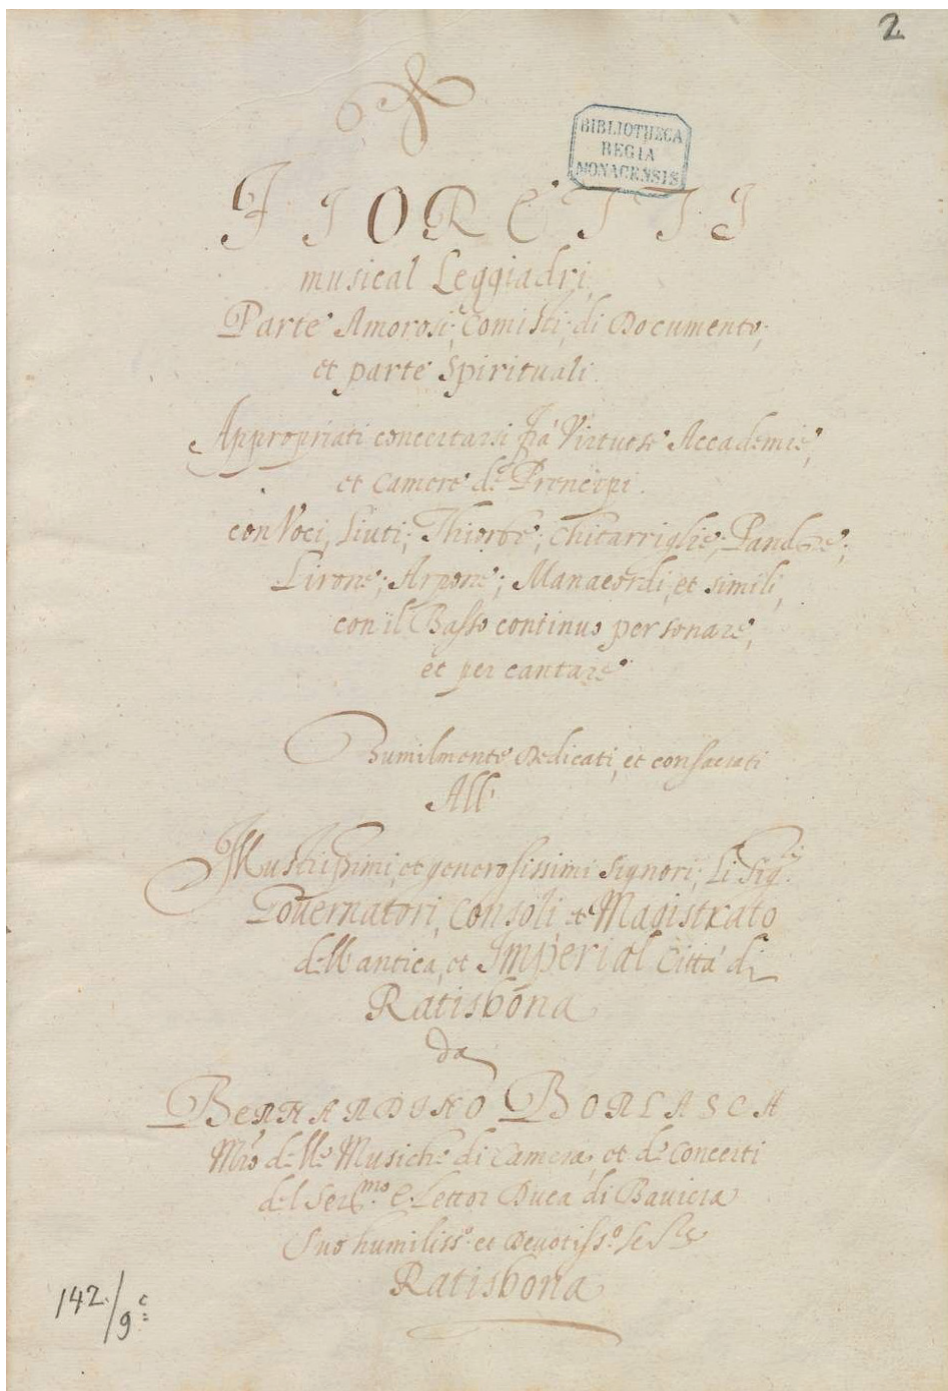 2
BIBLIOTHECA
REGIA
MONACENSIS
FIORETTI
musical Leggiadri
Parte Amorosi; Comisti; di Documento;
et parte Spirituali.
Appropriati concertarsi fra Virtuose Accademie,
et Camere de Prencipi.
con Voci, Liuti; Thiorbe; Chitarriglie; Pandore;
Lirone; Arpone; Manacordi, et simili,
con il Basso continuo per sonare,
et per cantare
Humilmente Dedicati, et consacrati
All'
Illustrissimi, et generosissimi Signori, Li Sigri.
Governatori, Consoli et Magistrato
dell'antica, et Imperial Città di
Ratisbona
da
BERNARDINO BORLASCA
Mro delle Musiche di Camera, et de Concerti
del Sermo. Elettor Duca di Baviera
Suo humilisso. et Devotisso.
Ratisbona
142/9c